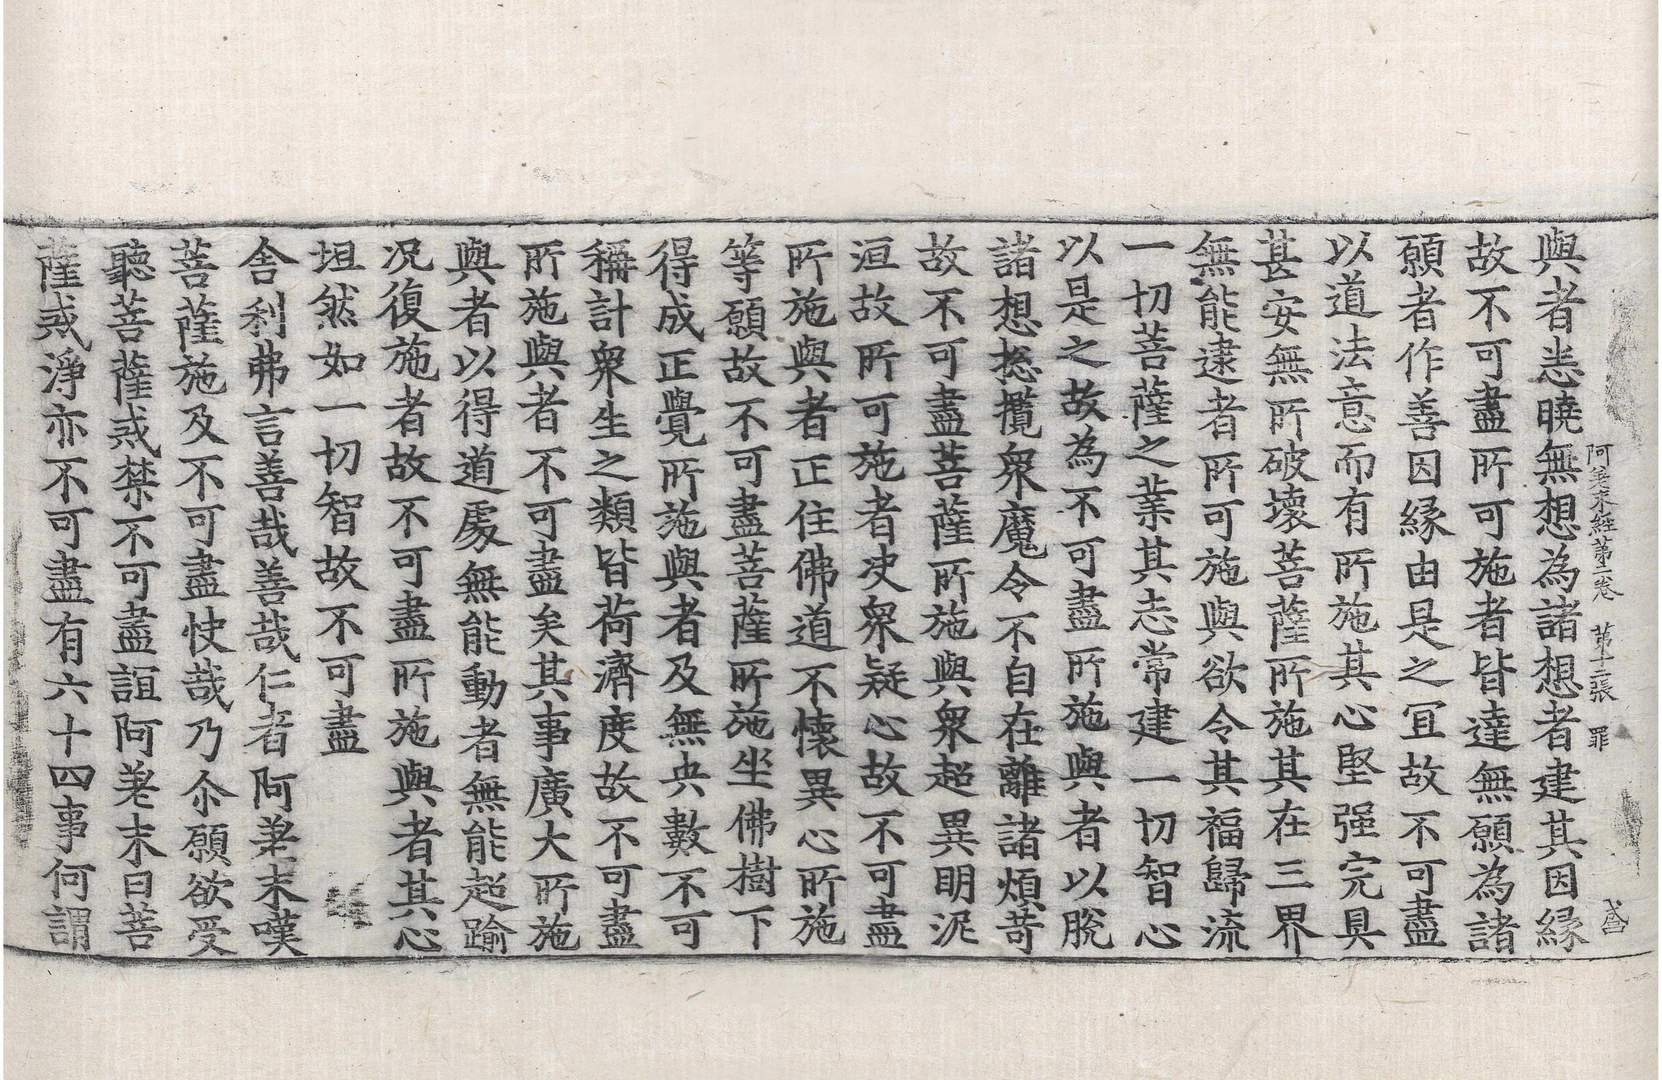 阿差末經第二卷　第十二張　罪
與者恙曉無想為諸想者建其因緣
故不可盡所可施者皆達無願為諸
願者作善因緣由是之冝故不可盡
以道法意而有所施其心堅强完具
甚安無所破壞菩薩所施其在三界
無能逮者所可施與欲令其福歸流
一切菩薩之業其志常建一切智心
以是之故為不可盡所施與者以脫
諸想捴攬衆魔令不自在離諸煩苛
故不可盡菩薩所施與衆超異明泥
洹故所可施者决衆疑心故不可盡
所施與者正住佛道不懷異心所施
等願故不可盡菩薩所施坐佛樹下
得成正覺所施與者及無央數不可
稱計衆生之類皆荷濟度故不可盡
所施與者不可盡矣其事廣大所施
與者以得道處無能動者無能超踰
况復施者故不可盡所施與者其心
坦然如一切智故不可盡
舍利弗言善哉善哉仁者阿差末嘆
菩薩施及不可盡快哉乃尒願欲受
聽菩薩戒禁不可盡誼阿差末曰菩
薩戒淨亦不可盡有六十四事何謂